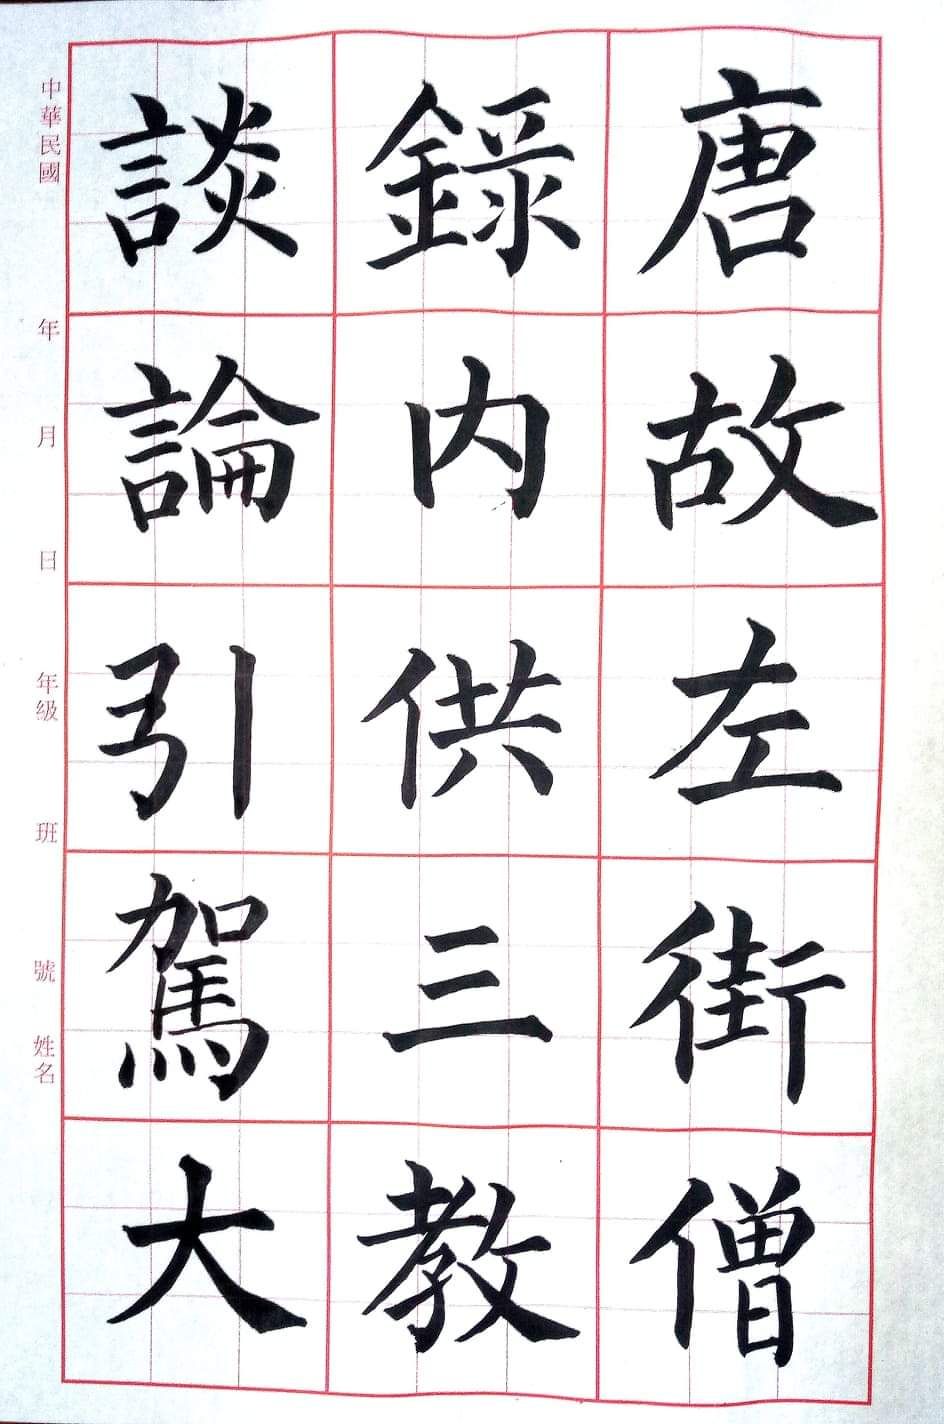 唐故左街僧
錄内供三教
談論引駕大
中華民國 年 月 日 年级 班 號 姓名